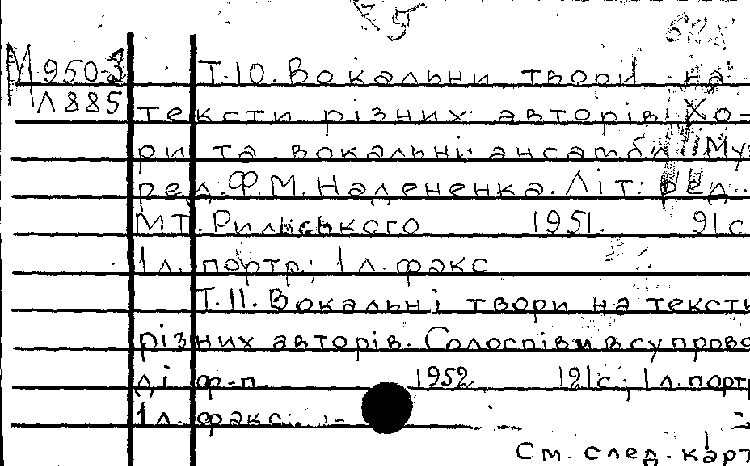 М 950-3
Л 885
Т.10. Вокальни твори на
тексти різних авторів. Хо-
ри та вокальні ансамблі. Му
ред. Ф.М. Надененка. Літ. ред.
М.Т. Рильського 1951. 91с
1 л. портр; 1 л. факс
Т.11. Вокальні твори на тексти
різних авторів. Солоспіви в супрово
ді ф-п 1952 121с; 1 л. порт
1 л. факс. -
См. след. карт